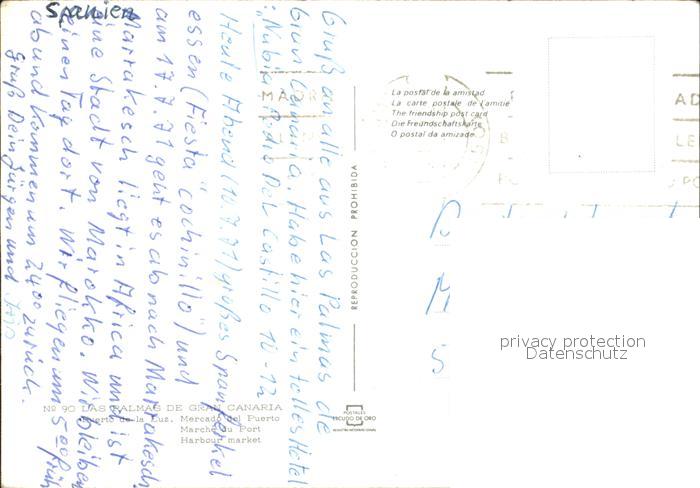 Spanien
Gruß an alle aus Las Palmas die
Gran Canaria. Habe hier ein tolles Hotel
: "Nubia" Pedro Del Castillo 10-12
Heute Abend (10.7.71) großes Spanferkel
essen (Fiesta "cochinillo") und
am 17.7.71 geht es ab nach Marrakesch
Marrakesch liegt in Africa und ist
eine Stadt von Marokko. Wir bleiben
einen Tag dort. Wir fliegen um 5 00 früh
ab und kommen um 24 00 zurück.
Gruß Dein Jürgen und
La postal de la amistad
La carte postale de l'amitié
The friendship post card
Die Freundschaftskarte
O postal da amizade
REPRODUCCION PROHIBIDA
Nº 90 LAS PALMAS DE GRAN CANARIA
Puerto de la Luz. Mercado del Puerto
Marché du Port
Harbour market
POSTALES
ESCUDO DE ORO
AD
LE
M
S
privacy protection
Datenschutz